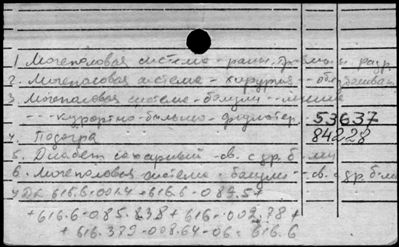 1 Мочеполовая система - рани.
2. Мочеполовая система - хирургия -
3 Мочеполовая система - болезни -- лечение
-- курортно-бальнео-физиотер. 53637
4 Подагра 84228
5. Диабет сахарный -св. с др. б-ми
6. Мочеполовая система - болезни -- св. с др. б-ми
УДК 616.6-001.4 + 616.6-089.5
+ 616.6-085.838 + 616-002.78 +
+ 616.379-008.64-06: 616.6